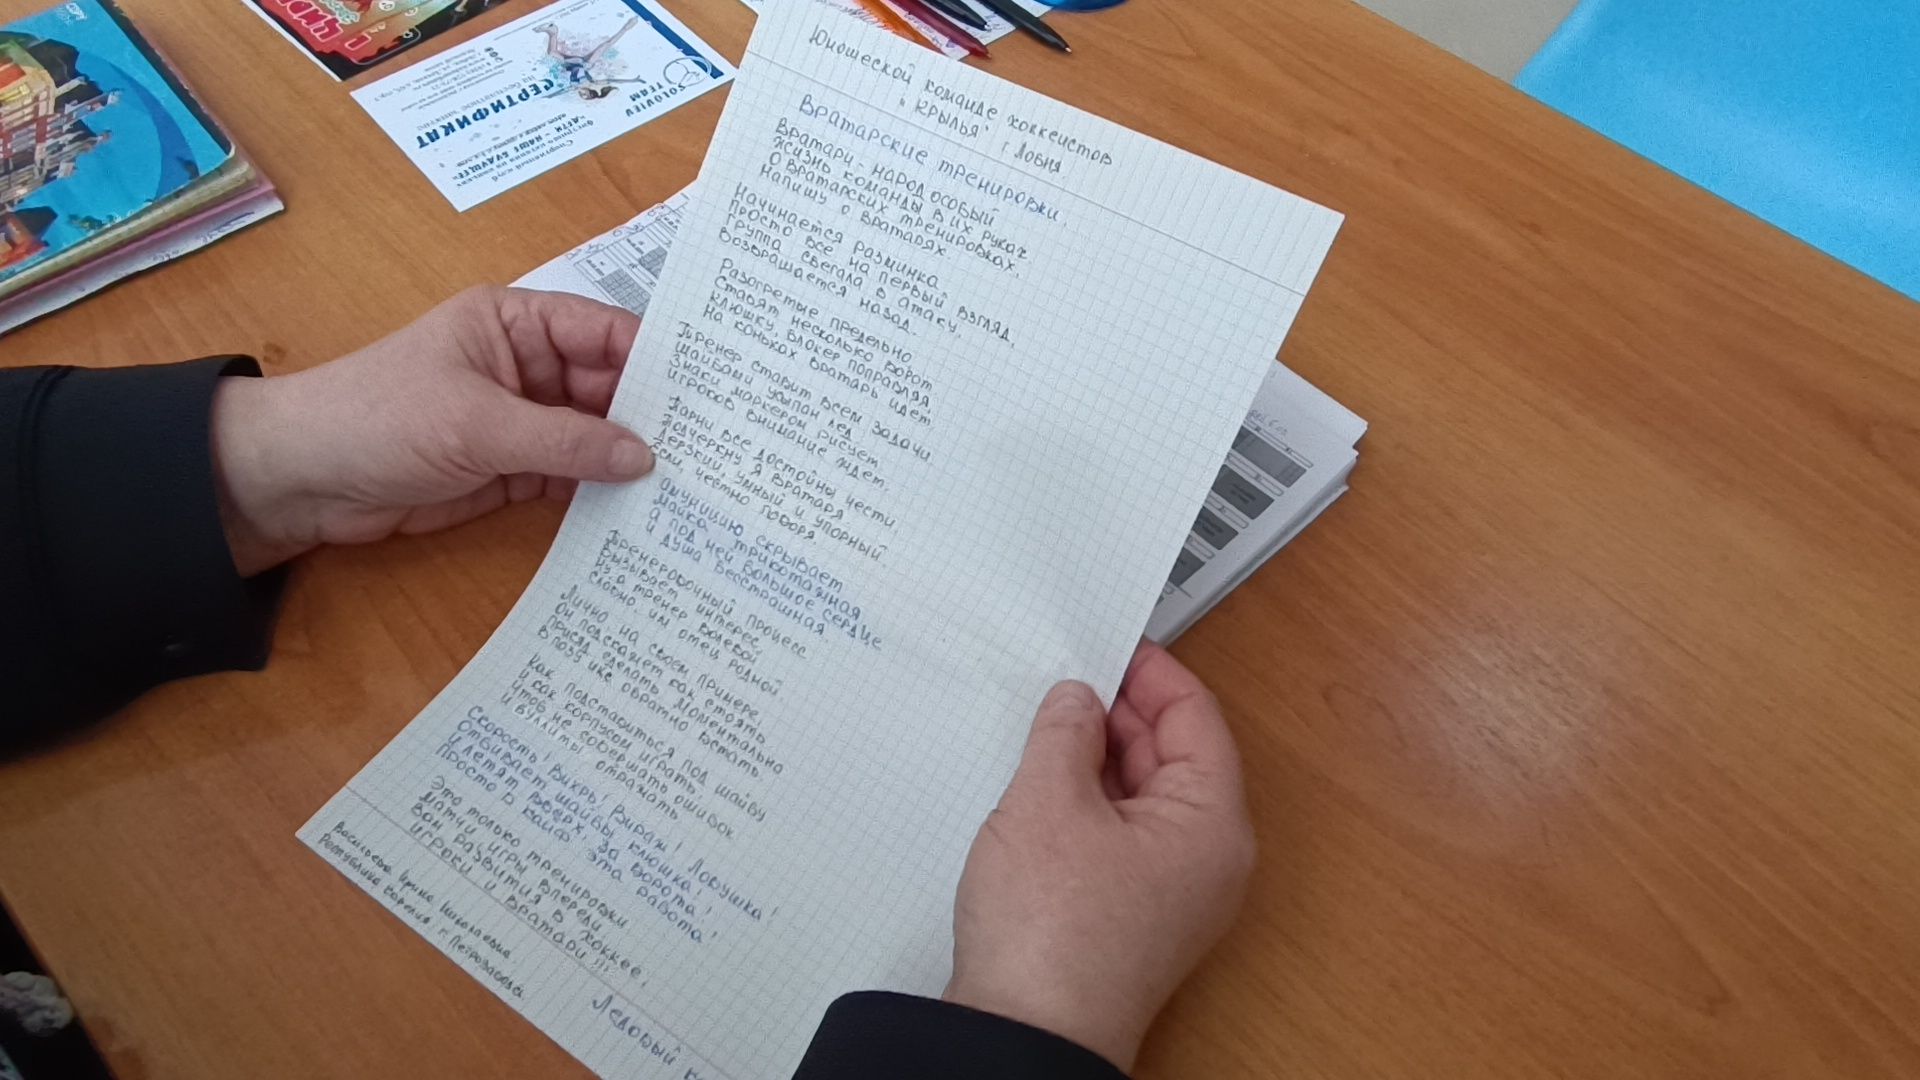 Юношеской команде хоккеистов
"Крылья"
г. Лобня.
Вратарские тренировки.
Вратари - народ особый
Жизнь команды в их руках
О вратарских тренировках,
Напишу о вратарях
Начинается разминка
Просто всё на первый взгляд,
Группа сбегала в атаку,
Возвращается назад.
Разогретые предельно
Ставят несколько ворот
Клюшку, блокер поправляя,
На коньках вратарь идет
Тренер ставит всем задачи
Шайбами усыпан лед
Знаки маркером рисует
Игроков внимание ждет.
Парни все достойны чести
Подчеркну я вратаря.
Дерзкий, умный и упорный
Если, честно говоря.
Амуницию скрывает
Майка трикотажная
А под ней большое сердце
И душа бесстрашная.
Тренеровочный процесс
Вызывает интерес,
Ну а тренер волевой
Словно, им отец родной.
Лично на своем примере,
Он подскажет как стоять
Присяд сделать моментально
В позу икс обратно встать.
Как подставиться под шайбу
И как корпусом играть.
Чтоб не совершать ошибок
И буллиты отражать
Скорость! Вихрь! Вираж! Ловушка!
Отбивает шайбы клюшка!
И летят вверх, за ворота!
Просто в кайф эта работа!
Это только тренировки
Матчи игры впереди
Вам развития в хоккее,
Игроки и вратари!!!
Васильева Ирина Николаевна
Республика Карелия г. Петрозаводск
Ледовый
СЕРТИФИКАТ
на бесплатное занятие
SOLOVIEV
TEAM
Спортивный клуб
фигурного катания на коньках
«ДЕТИ - НАШЕ БУДУЩЕЕ»